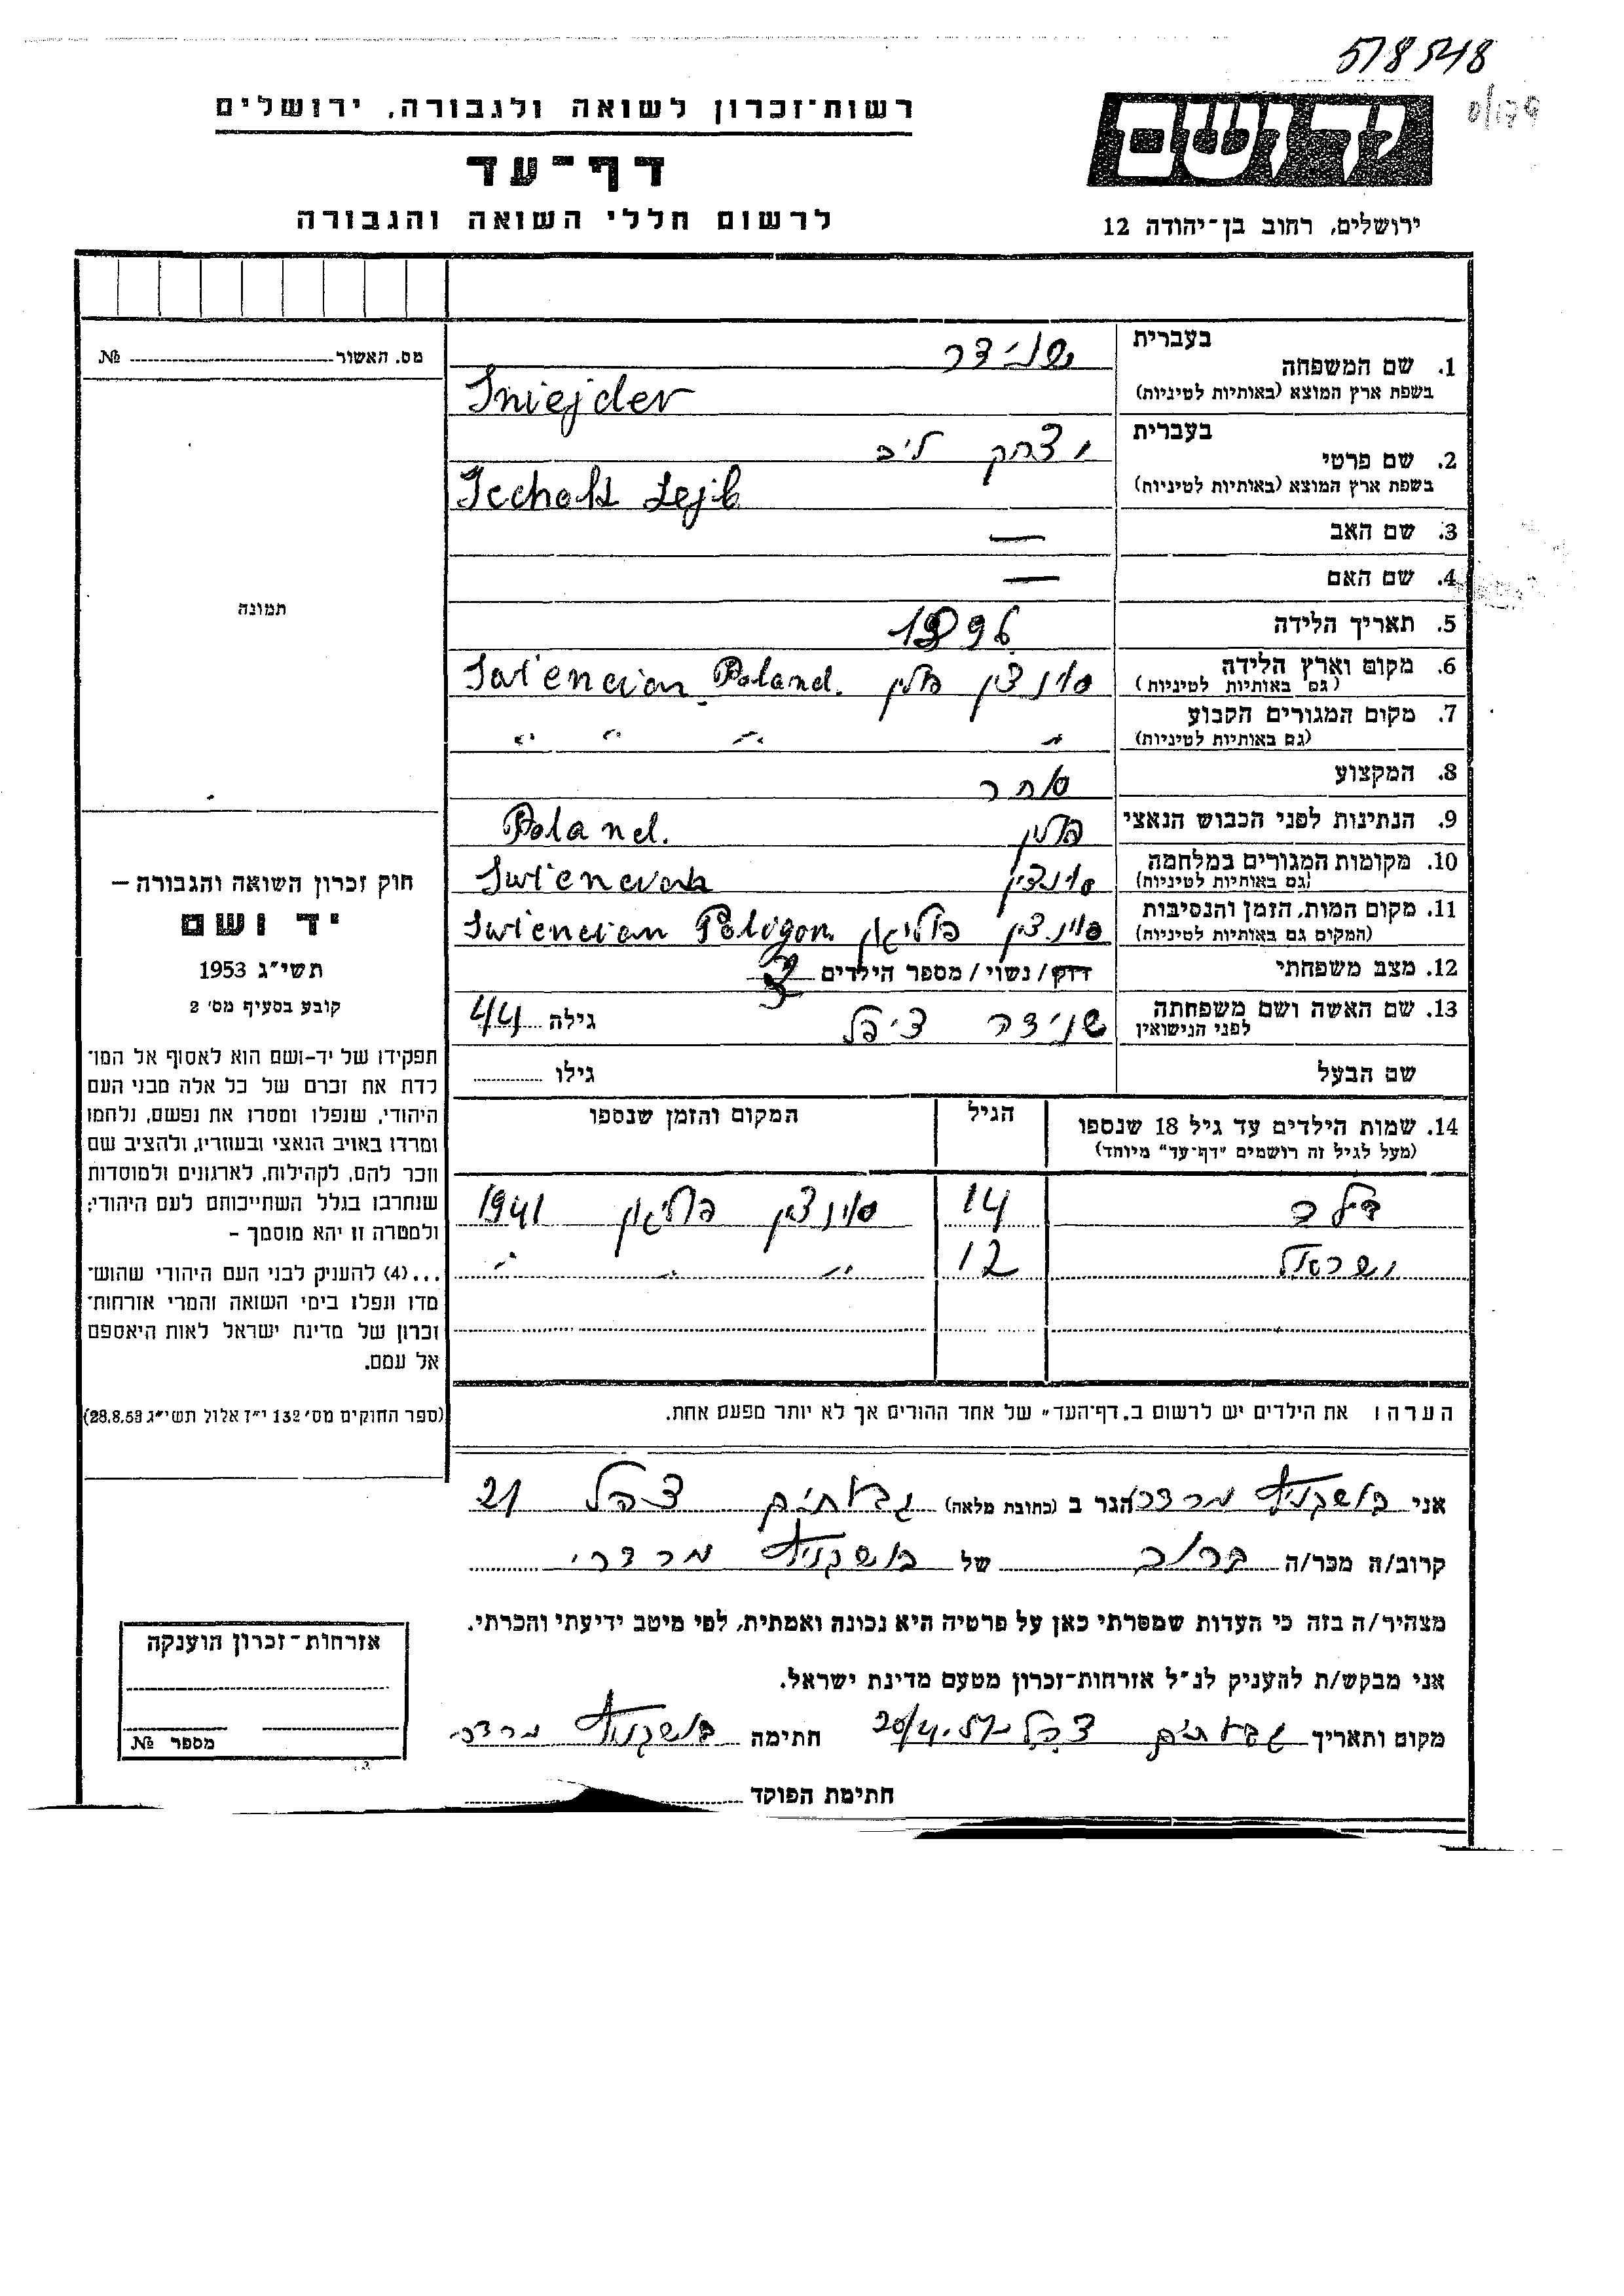 518548
רשות־זכרון לשואה ולגבורה, ירושלים
דף־עד
לרשום חללי השואה והגבורה
יד ושם
ירושלים, רחוב בן־יהודה 12
מס. האשור № 
תמונה
חוק זכרון השואה והגבורה —
יד ושם
תשי״ג 1953
קובע בסעיף מס׳ 2
תפקידו של יד-ושם הוא לאסוף אל המו־
לדת את זכרם של כל אלה מבני העם
היהודי, שנפלו ומסרו את נפשם, נלחמו
ומרדו באויב הנאצי ובעוזריו, ולהציב שם
וזכר להם, לקהילות, לארגונים ולמוסדות
שנחרבו בגלל השתייכותם לעם היהודי;
ולמטרה זו יהא מוסמך –
...(4) להעניק לבני העם היהודי שהוש־
מדו ונפלו בימי השואה והמרי אזרחות־
זכרון של מדינת ישראל לאות היאספם
אל עמם.
(ספר החוקים מס׳ 132 י״ז אלול תשי״ג 28.8.53)
בעברית שנידר
1. שם המשפחה
בשפת ארץ המוצא (באותיות לטיניות) Sniejder
בעברית יצחק ליב
2. שם פרטי
בשפת ארץ המוצא (באותיות לטיניות) Icchak Lejb
3. שם האב —
4. שם האם —
5. תאריך הלידה 1896
6. מקום וארץ הלידה סוינצין פולין Swiencian Poland.
(גם באותיות לטיניות)
7. מקום המגורים הקבוע " " " "
(גם באותיות לטיניות)
8. המקצוע סוחר
9. הנתינות לפני הכבוש הנאצי פולין Poland.
10. מקומות המגורים במלחמה סוינצין
(גם באותיות לטיניות)
11. מקום המות, הזמן והנסיבות סוינצין פוליגון Swiencian Poligon
(המקום גם באותיות לטיניות)
12. מצב משפחתי רווק / נשוי / מספר הילדים
13. שם האשה ושם משפחתה שנידר ציפל גילה 44
לפני הנישואין
שם הבעל גילו
14. שמות הילדים עד גיל 18 שנספו הגיל המקום והזמן שנספו
(מעל לגיל זה רושמים "דף־עד" מיוחד)
14 סוינצין פוליגון 1941
ישראל 12 " " "
הערה: את הילדים יש לרשום ב„דף־העד״ של אחד ההורים אך לא יותר מפעם אחת.
אני בושקניץ מרדכי הגר ב (כתובת מלאה) גבעתיים צהל 21
קרוב/ה מכר/ה קרוב של בושקניץ מרדכי
מצהיר/ה בזה כי העדות שמסרתי כאן על פרטיה היא נכונה ואמתית, לפי מיטב ידיעתי והכרתי.
אני מבקש/ת להעניק לנ״ל אזרחות־זכרון מטעם מדינת ישראל.
מקום ותאריך גבעתיים צהל 20/4.57 חתימה בושקניץ מרדכי
חתימת הפוקד
אזרחות־זכרון הוענקה
מספר №